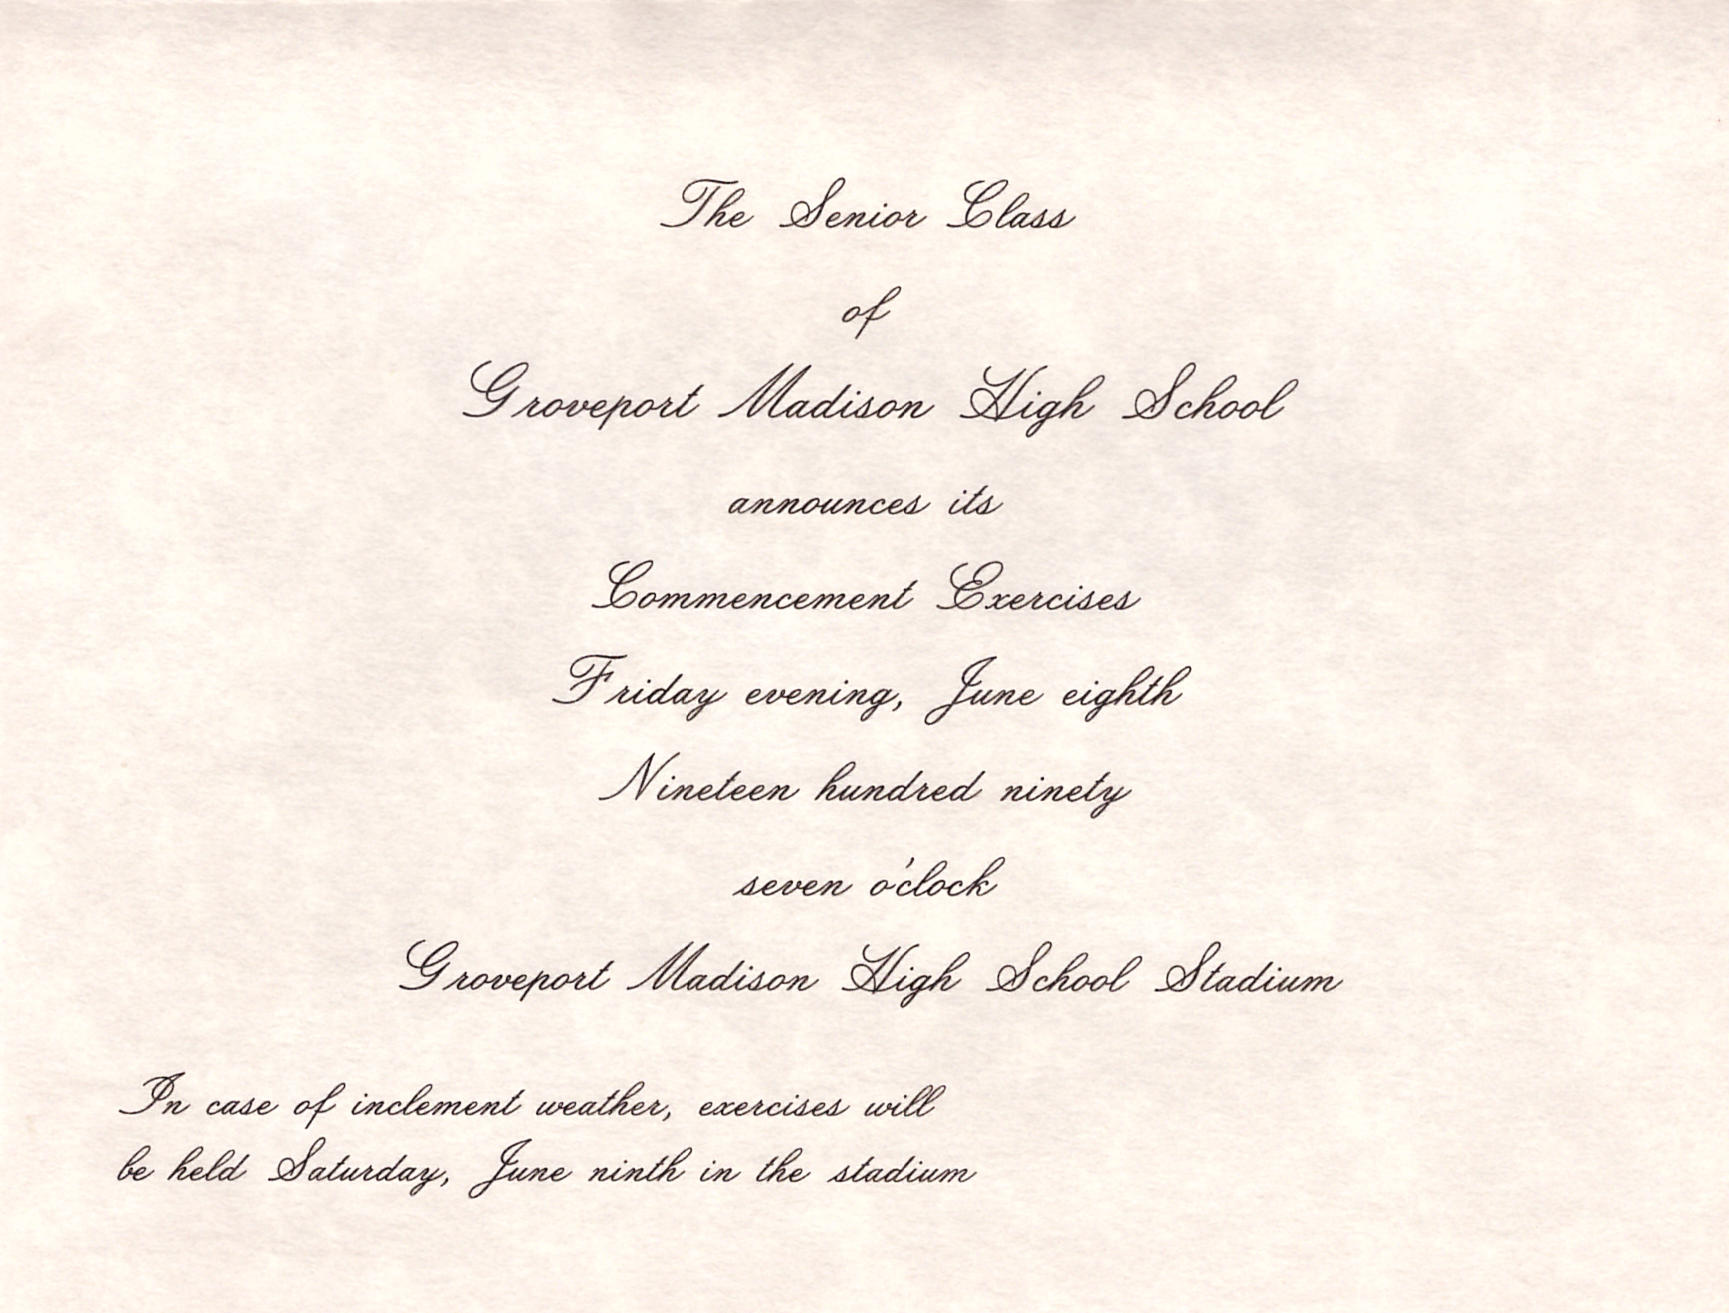 The Senior Class
of
Groveport Madison High School
announces its
Commencement Exercises
Friday evening, June eighth
Nineteen hundred ninety
seven o'clock
Groveport Madison High School Stadium
In case of inclement weather, exercises will
be held Saturday, June ninth in the stadium